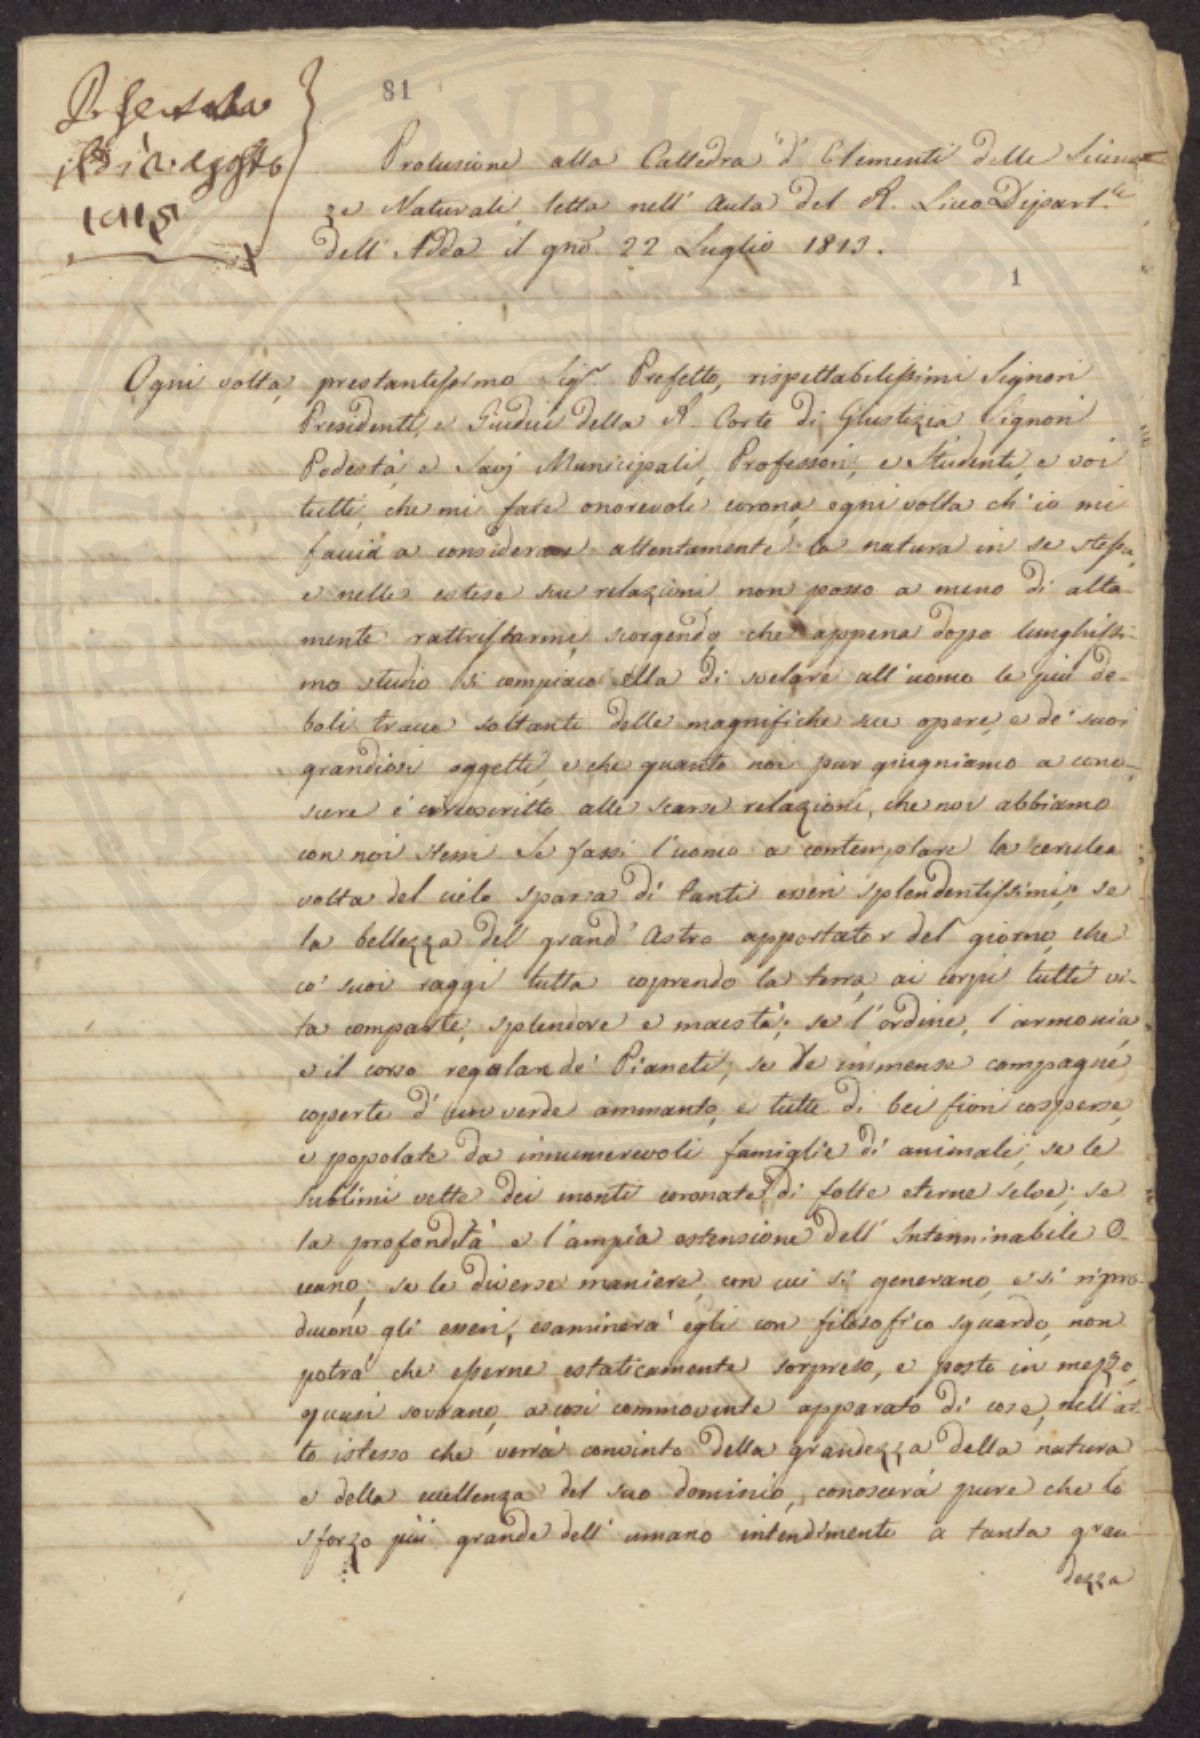 81
Presentata
il dì 2 Agosto
1813
Prolusione alla Cattedra d' Elementi delle Scien-
ze Naturali, letta nell' Aula del R. Liceo Dipart.le
dell' Adda il gno. 22 Luglio 1813.
1
Ogni volta, prestantissimo Sigr. Prefetto, rispettabilissimi Signori
Presidenti, e Giudici della R. Corte di Giustizia Signori
Podestà, e Savj Municipali, Professori, e Studenti, e voi
tutti, che mi fate onorevole corona, ogni volta ch' io mi
faccia a considerare attentamente la natura in se stessa,
e nelle estese sue relazioni non posso a meno di alta-
mente rattristarmi, scorgendo, che appena dopo lunghissi-
mo studio si compiace ella di svelare all' uomo le più de-
boli tracce soltanto delle magnifiche sue opere, e de' suoi
grandiosi oggetti, e che quanto noi pur giugniamo a cono-
scere è circoscritto alle scarse relazioni, che noi abbiamo
con noi stessi. Se fassi l' uomo a contemplare la cerulea
volta del cielo sparsa di tanti esseri splendentissimi; se
la bellezza del grand' Astro apportator del giorno, che
co' suoi raggi tutta coprendo la terra, ai corpi tutti vi-
ta comparte, splendore e maestà; se l' ordine, l' armonia,
e il corso regolare de' Pianeti; se le immense campagne
coperte d' un verde ammanto, e tutte di bei fiori cosperse,
e popolate da innumerevoli famiglie di animali; se le
sublimi vette dei monti coronate di folte eterne selve; se
la profondità e l' ampia estensione dell' Interminabile O-
ceano; se le diverse maniere, con cui si generano, e si ripro-
ducono gli esseri, esaminerà egli con filosofico sguardo, non
potrà che esserne estaticamente sorpreso, e posto in mezzo,
quasi sovrano, a così commovente apparato di cose, nell' at-
to istesso che verrà convinto della grandezza della natura
e della eccellenza del suo dominio, conoscerà pure che lo
sforzo più grande dell' umano intendimento a tanta gran-
dezza